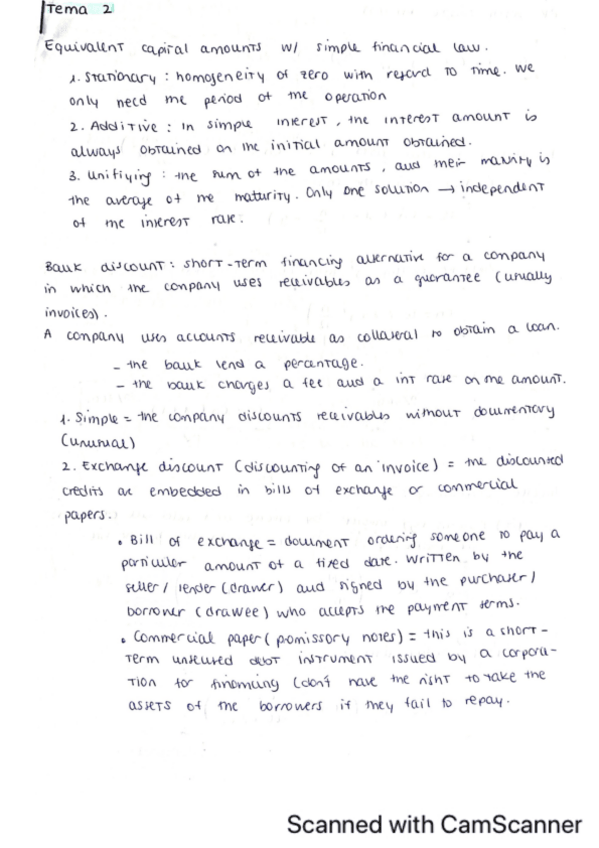 Tema 2
Equivalent capital amounts w/ simple financial law.
1. Stationary : homogeneity of zero with regard to time. We
only need the period of the operation
2. Additive : In simple interest, the interest amount is
always obtained on the initial amount obtained.
3. Unifiying : the sum of the amounts, and their maturity is
the average of the maturity. Only one solution → independent
of the interest rate.
Bank discount : short-term financing alternative for a company
in which the company uses receivables as a guarantee (usually
invoices).
A company uses accounts receivable as collateral to obtain a loan.
- the bank lend a percentage.
- the bank charges a fee and a int rate on the amount.
1. Simple = the company discounts receivables without documentary
(unusual)
2. Exchange discount (discounting of an invoice) = the discounted
credits are embedded in bills of exchange or commercial
papers.
• Bill of exchange = document ordering someone to pay a
particular amount at a fixed date. Written by the
seller / lender (drawer) and signed by the purchaser /
borrower (drawee) who accepts the payment terms.
• Commercial paper (pomissory notes) = this is a short-
term unsecured debt instrument issued by a corpora-
tion for financing (don't have the right to take the
assets of the borrowers if they fail to repay.
Scanned with CamScanner